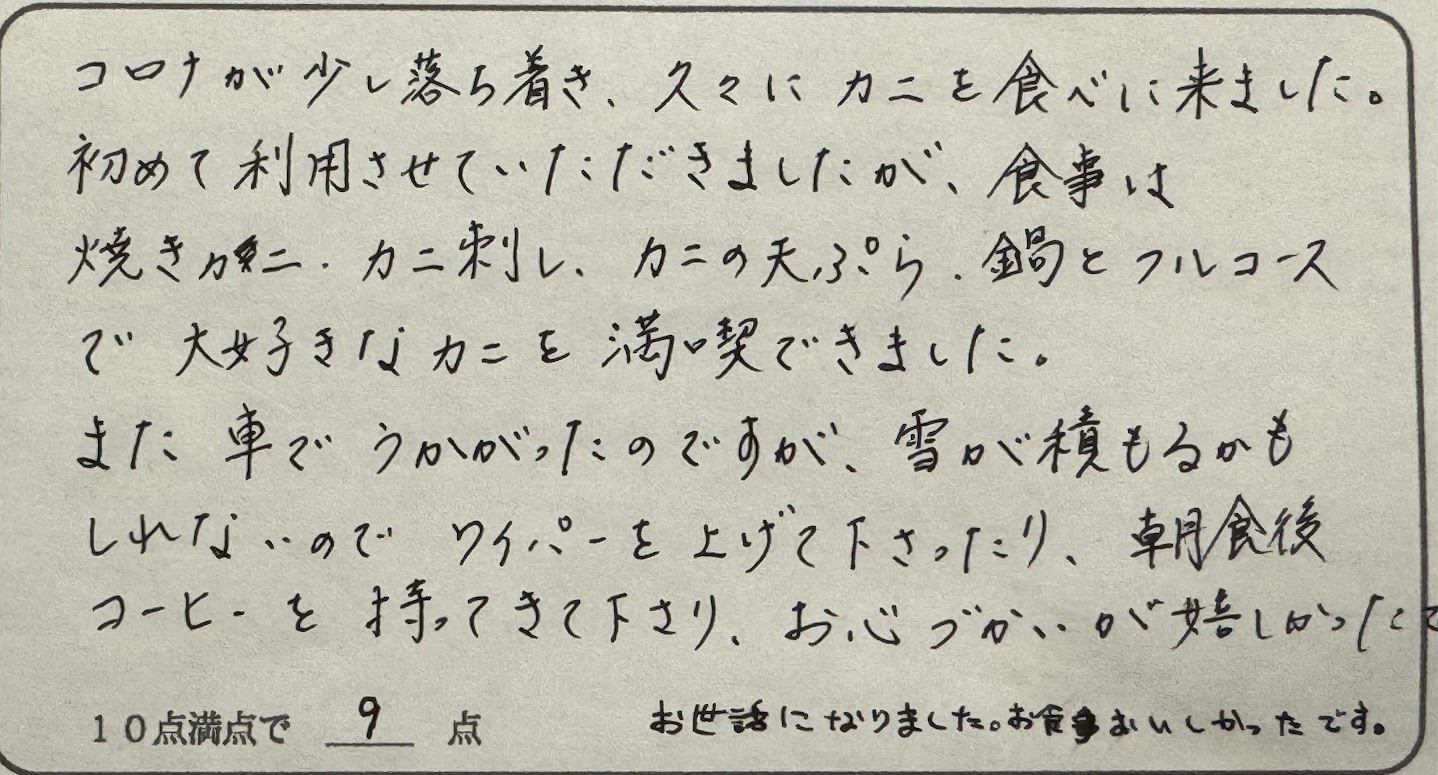 コロナが少し落ち着き、久々にカニを食べに来ました。
初めて利用させていただきましたが、食事は
焼きカニ、カニ刺し、カニの天ぷら、鍋とフルコース
で大好きなカニを満喫できました。
また車でうかがったのですが、雪が積もるかも
しれないのでワイパーを上げて下さったり、朝食後
コーヒーを持ってきて下さり、お心づかいが嬉しかったで
10点満点で 9 点
お世話になりました。お食事おいしかったです。